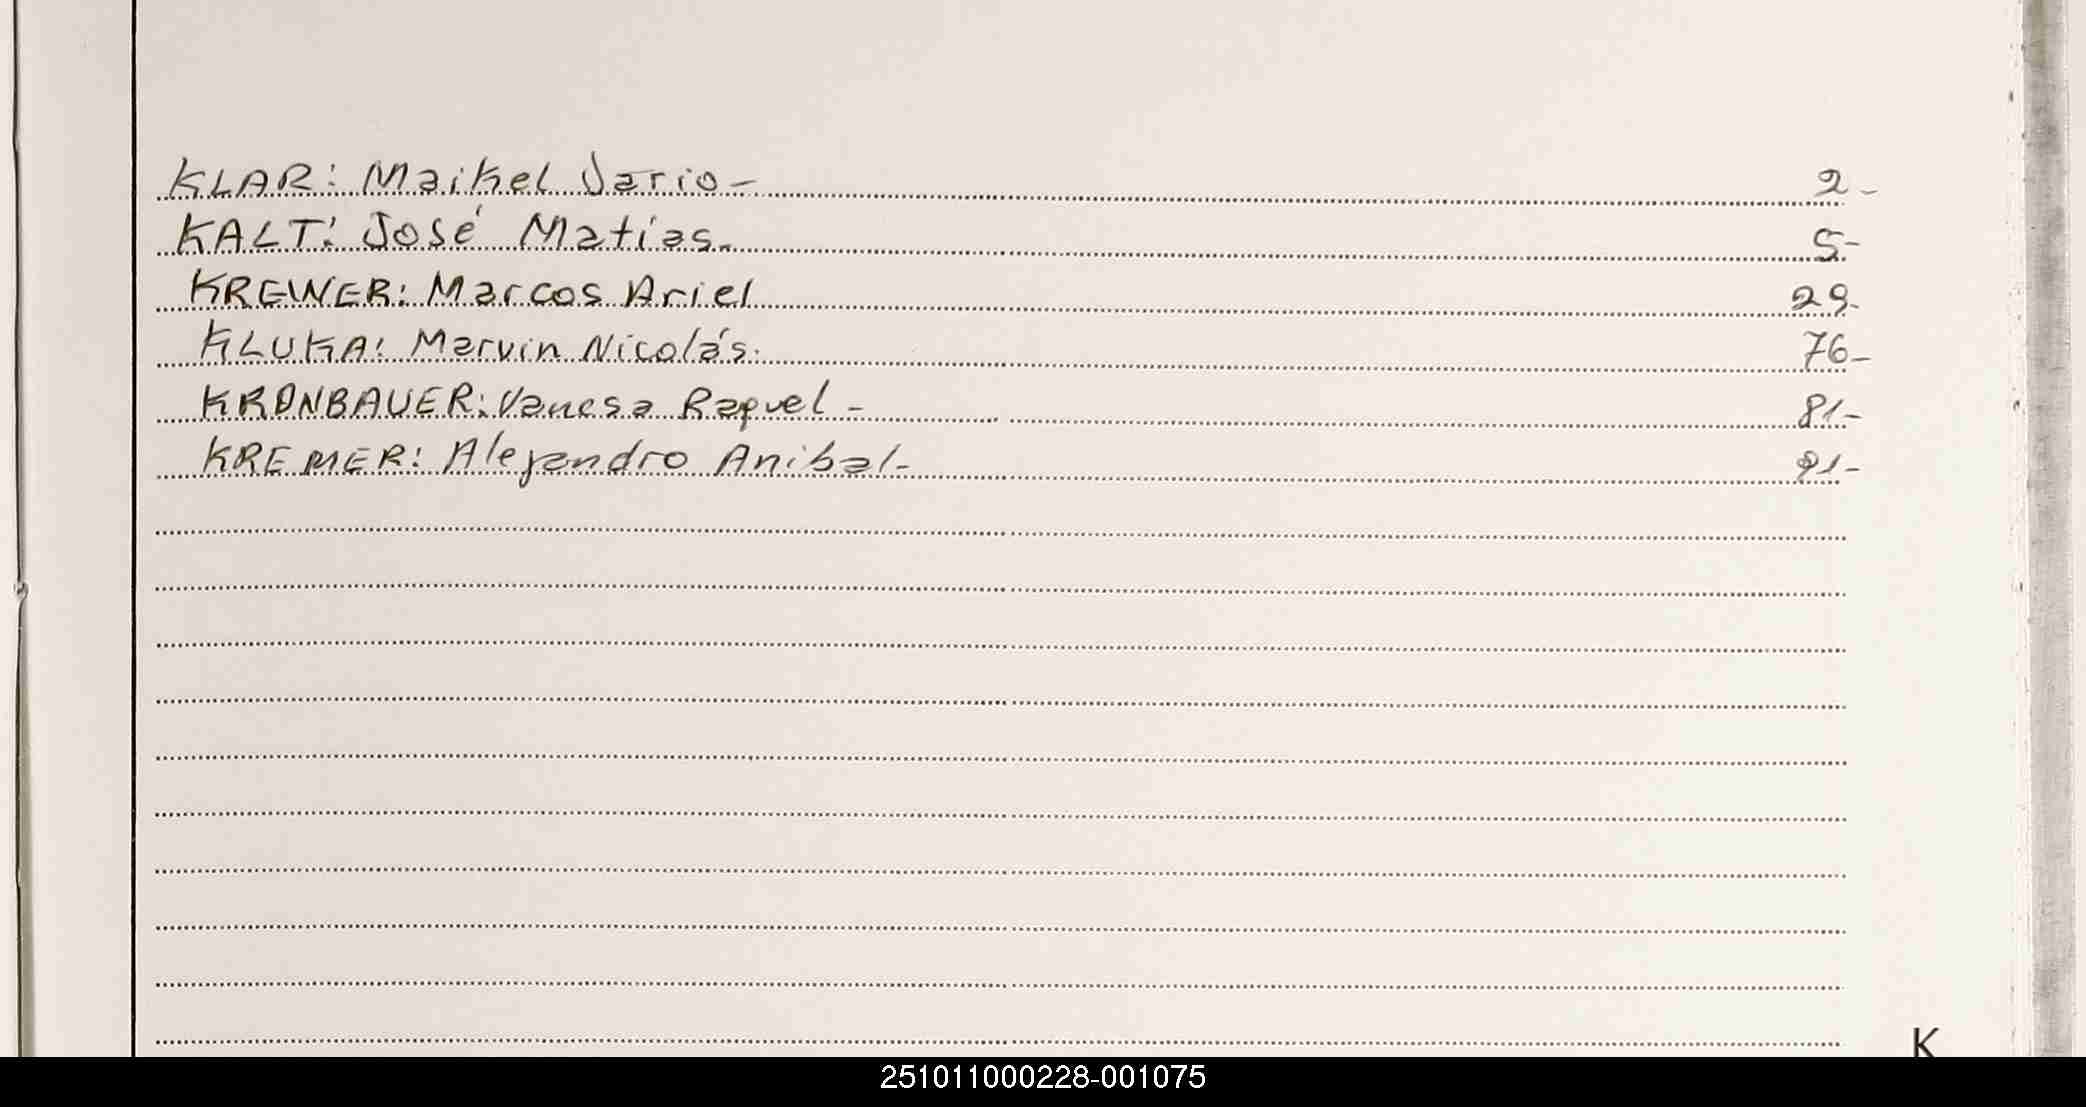 KLAR: Maikel Dario- 2-
KALT: José Matías. 5-
KREWER: Marcos Ariel 29-
KLUKA: Marvin Nicolás. 76-
KRONBAUER: Vanesa Raquel - 81-
KREMER: Alejandro Anibal- 91-
K
251011000228-001075